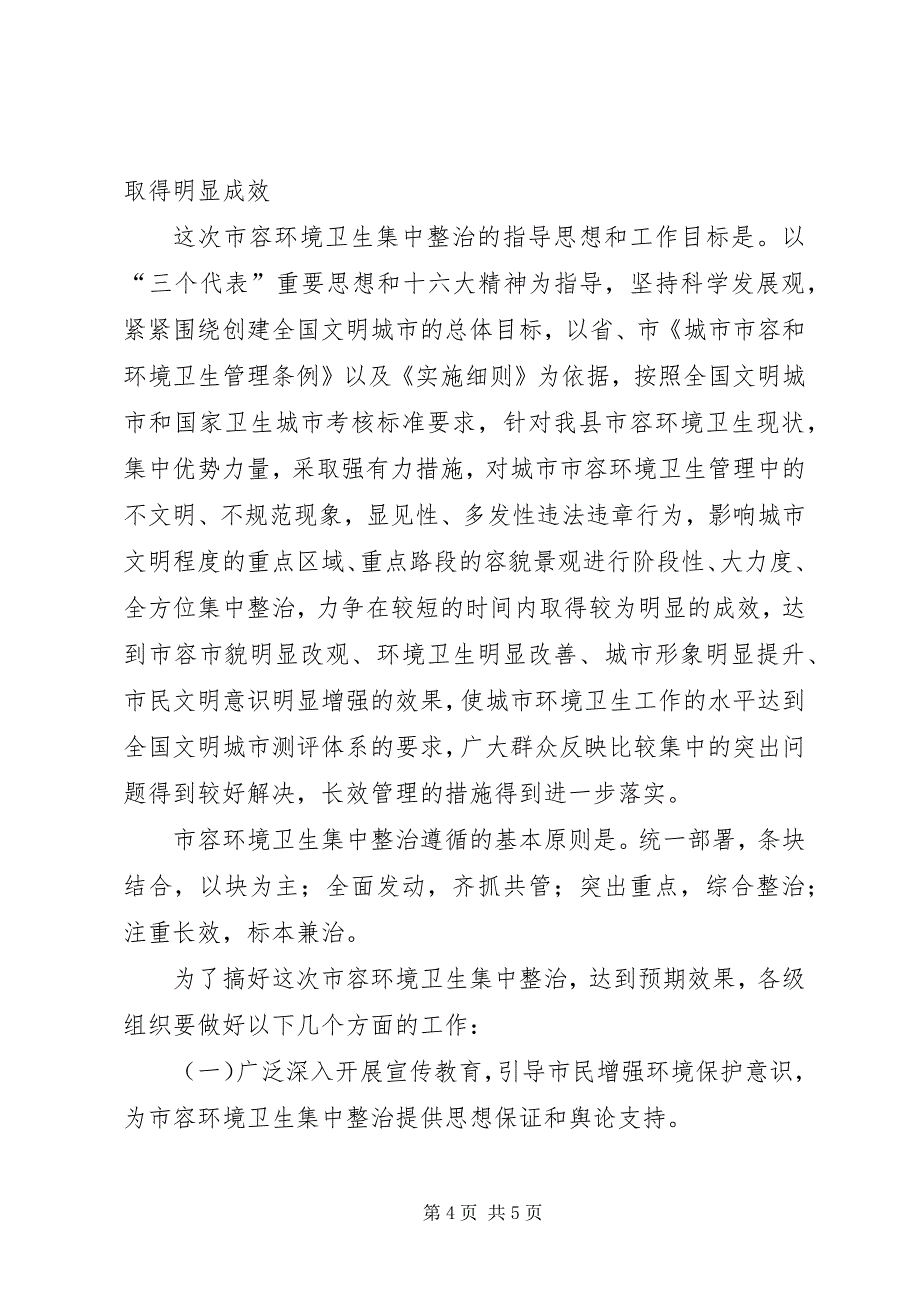 取得明显成效
这次市容环境卫生集中整治的指导思想和工作目标是。以
“三个代表”重要思想和十六大精神为指导，坚持科学发展观，
紧紧围绕创建全国文明城市的总体目标，以省、市《城市市容和
环境卫生管理条例》以及《实施细则》为依据，按照全国文明城
市和国家卫生城市考核标准要求，针对我县市容环境卫生现状，
集中优势力量，采取强有力措施，对城市市容环境卫生管理中的
不文明、不规范现象，显见性、多发性违法违章行为，影响城市
文明程度的重点区域、重点路段的容貌景观进行阶段性、大力度、
全方位集中整治，力争在较短的时间内取得较为明显的成效，达
到市容市貌明显改观、环境卫生明显改善、城市形象明显提升、
市民文明意识明显增强的效果，使城市环境卫生工作的水平达到
全国文明城市测评体系的要求，广大群众反映比较集中的突出问
题得到较好解决，长效管理的措施得到进一步落实。
市容环境卫生集中整治遵循的基本原则是。统一部署，条块
结合，以块为主；全面发动，齐抓共管；突出重点，综合整治；
注重长效，标本兼治。
为了搞好这次市容环境卫生集中整治，达到预期效果，各级
组织要做好以下几个方面的工作：
（一）广泛深入开展宣传教育，引导市民增强环境保护意识，
为市容环境卫生集中整治提供思想保证和舆论支持。
第 4 页 共 5 页